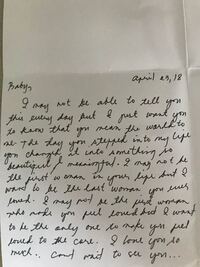 April 23, 18
Baby,
I may not be able to tell you
this every day but I just want you
to know that you mean the world to
me. The day you stepped into my life
you changed it into something so
beautiful & meaningful. I may not be
the first woman in your life but I
want to be the last woman you ever
loved. I may not be the first woman
who makes you feel loved but I want
to be the only one to make you feel
loved to the core. I love you so
much.. Can't wait to see you...